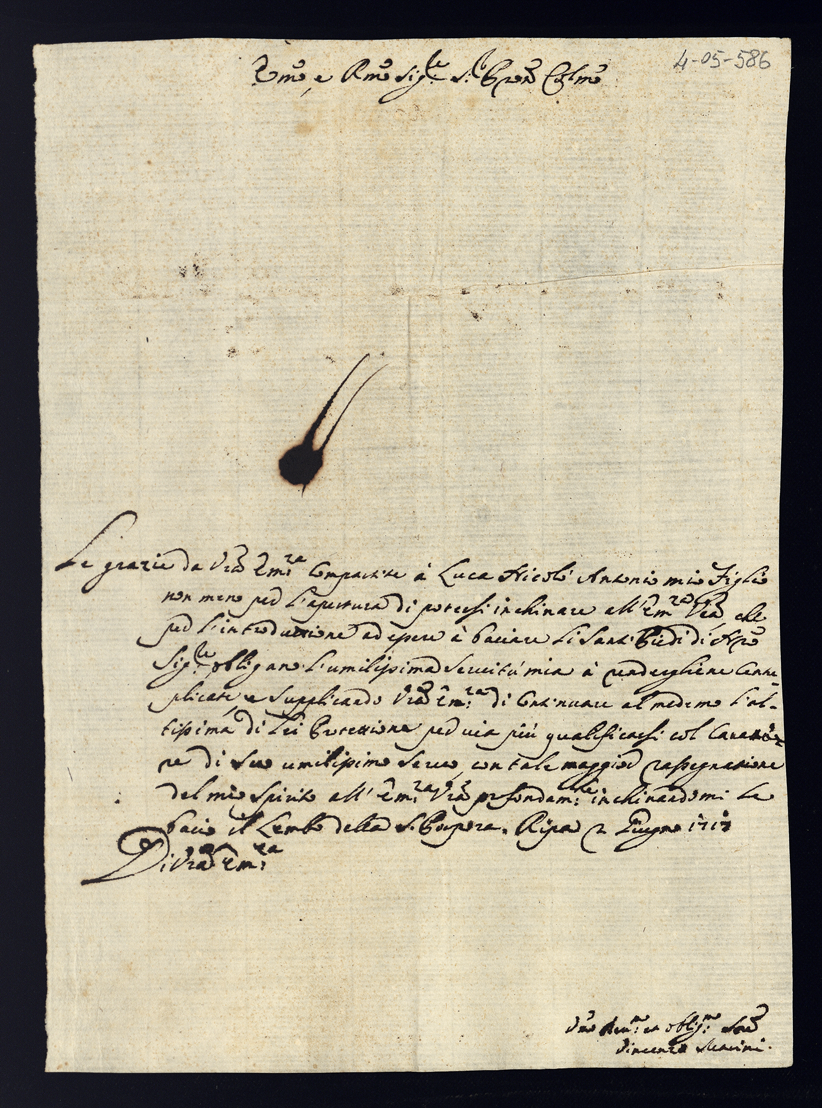 4-05-586
Emo e Rmo Sig.re S.r Pron Colmo
Le grazie da Vra Em.za Compartite à Luca Nicolò Antonio mio Figlio
non meno per l'apertura di potersi inchinare all'Em.za Vra che
per l'introduzione ad essere à baciare li Santi Piedi di Nro
Sig.re obligano l'umilissima Servitù mia à rendergliene
plicate, e Supplicando Vra Em.za di Continuare al medemo l'al-
tissima di Lei Protezione per via più qualificarsi col Caratte-
re di Suo umilissimo Servo, con tale maggior rassegnazione
del mio Spirito all'Em.za Vra profondam.te inchinandomi Le
bacio il Lembo della S. Porpora. Ripa 2 Giugno
Di Vra Em.za
Vmo Devmo et oblig.mo Sre
Vincenzo